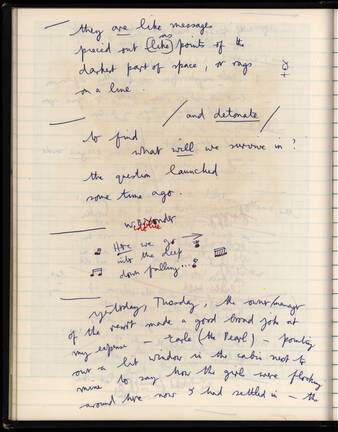 they are like messages
as
pieced out (like) points of the
darkest part of space, or rags
on a line.
/ and detonate /
to find
what will we survive in?
the question launched
some time ago.
wild yonder
Here we go →
into the deep
down falling...
yesterday, Tuesday, the owner/manager
of the resort made a good broad joke at
my expense — Earle (the Pearl) — pointing
out a lit window in the cabin next to
mine to say how the girls were flocking
around here now I had settled in — the